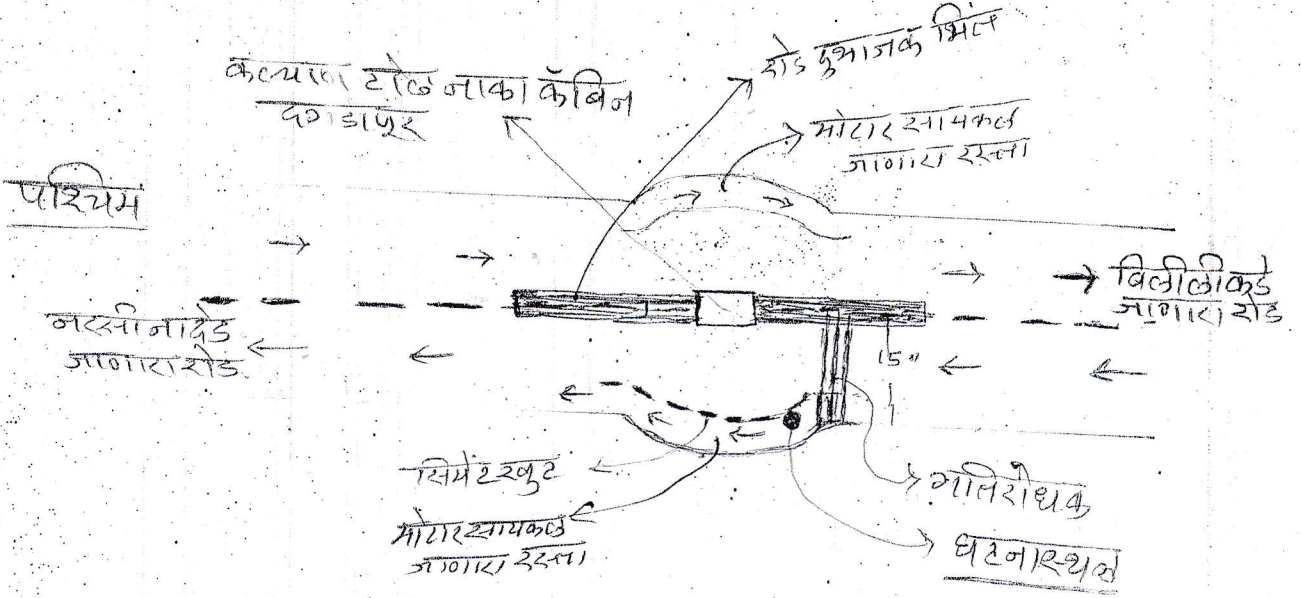 रोड दुभाजक भिंत
कल्याण टोल नाका कॅबिन
दगडापूर
मोटार सायकल
जाणारा रस्ता
पश्चिम
बिलोलीकडे
जाणारा रोड
नरसी नांदेड
जाणारा रोड
15"
सिमेंट खुट
मोटार सायकल
जाणारा रस्ता
गतिरोधक
घटनास्थळ